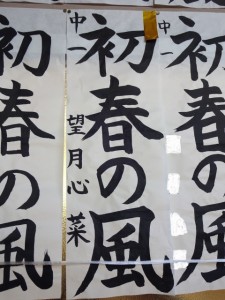 初春の風
中一
初春の風
中一 望月心菜
初春の風